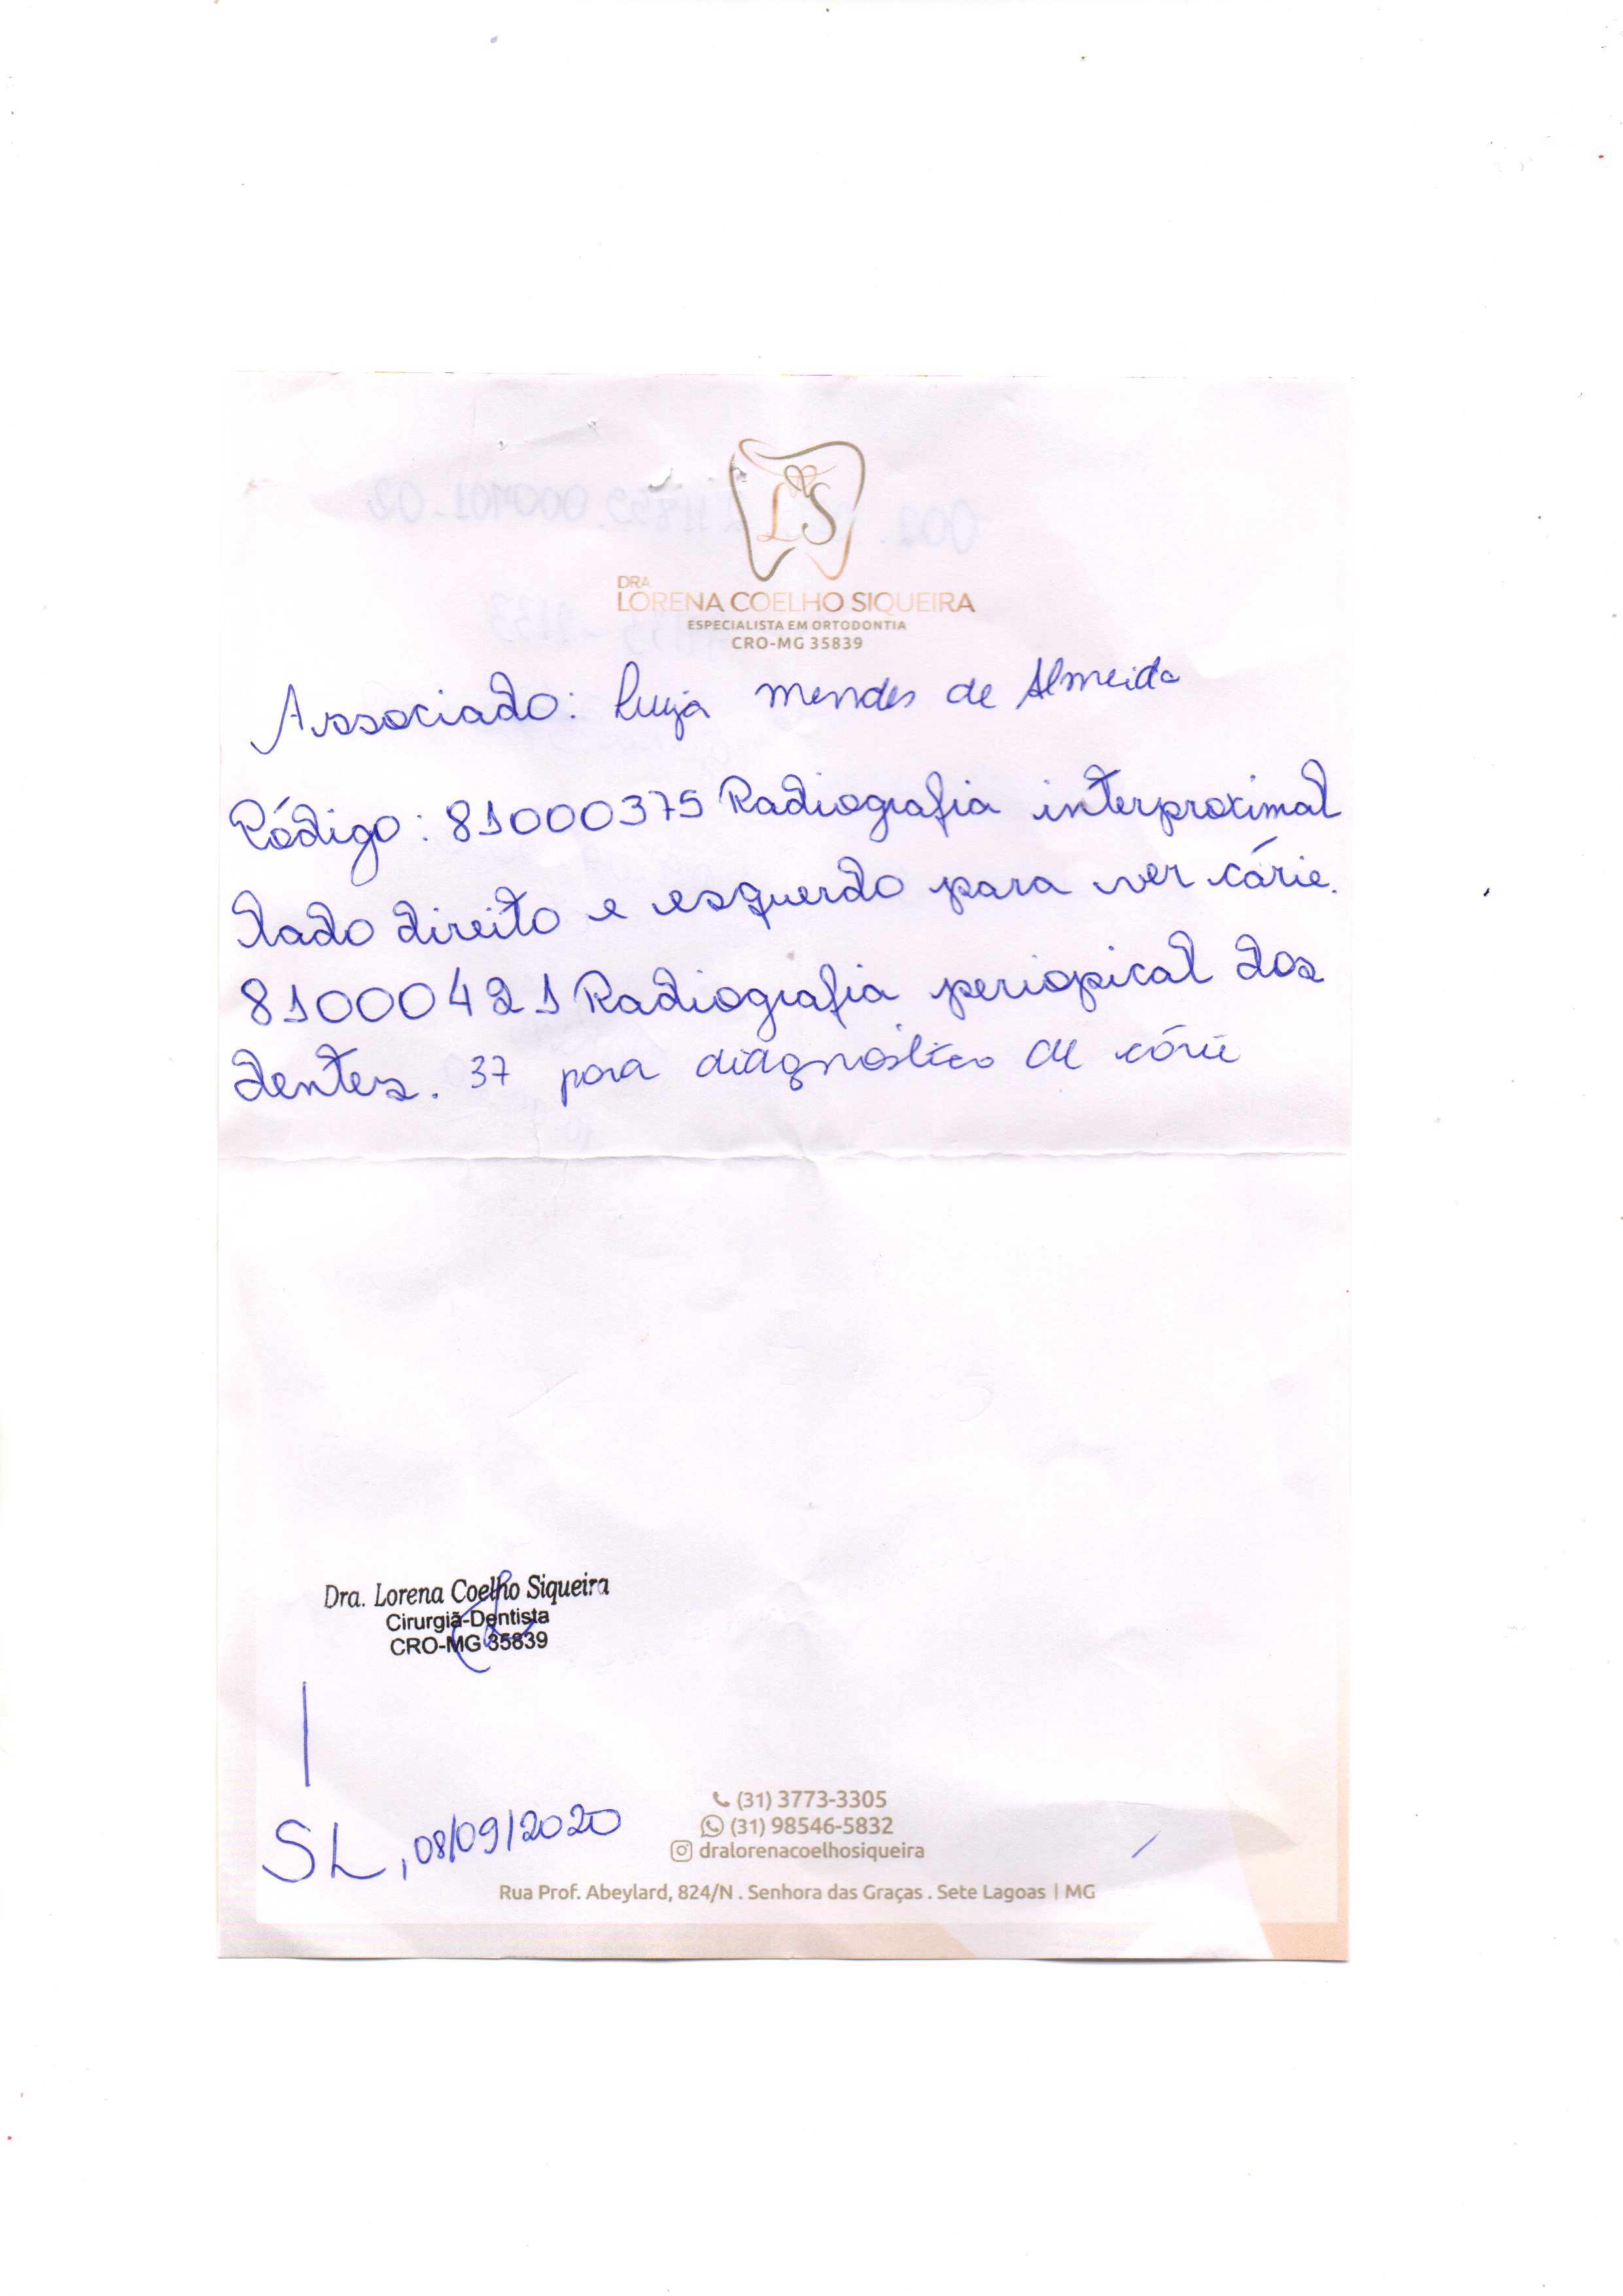 LS
DRA.
LORENA COELHO SIQUEIRA
ESPECIALISTA EM ORTODONTIA
CRO-MG 35839
Associado: Luiza Mendes de Almeida
Código: 81000375 Radiografia interproximal
lado direito e esquerdo para ver cárie.
81000421 Radiografia periapical dos
dentes. 37 para diagnóstico de cárie
Dra. Lorena Coelho Siqueira
Cirurgiã-Dentista
CRO-MG 35839
SL, 08/09/2020
(31) 3773-3305
(31) 98546-5832
dralorenacoelhosiqueira
Rua Prof. Abeylard, 824/N . Senhora das Graças . Sete Lagoas | MG